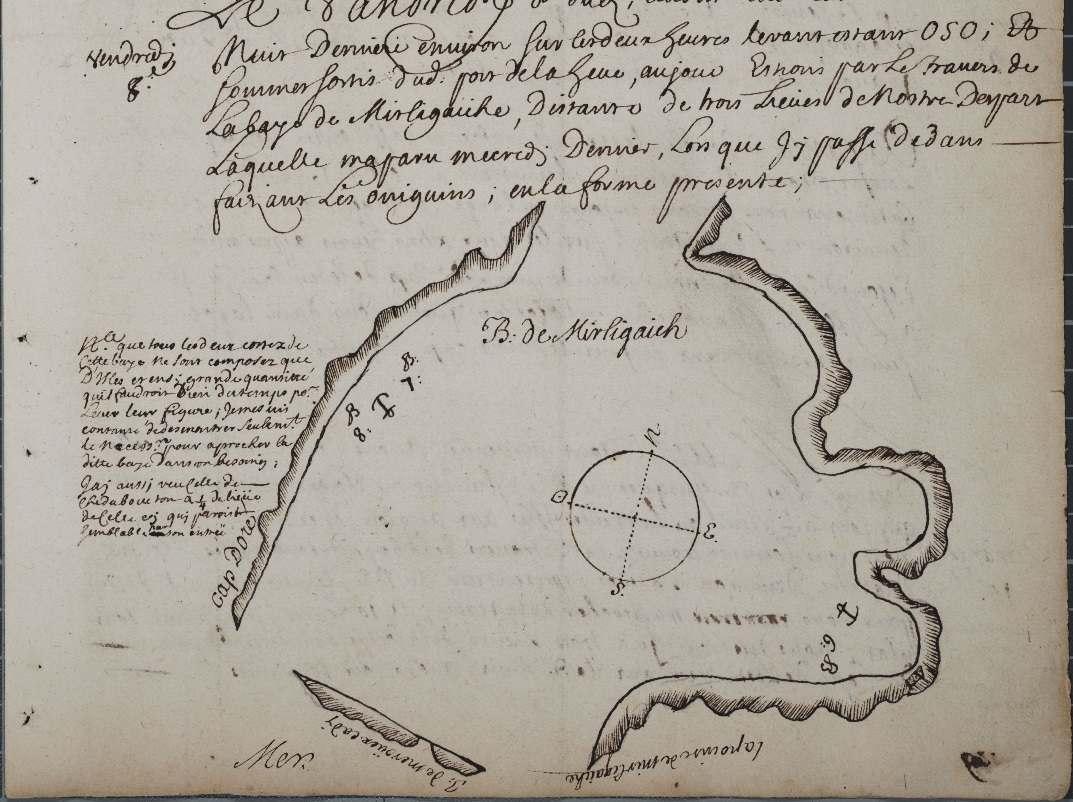 Le Vandredj
Vendredj
8.e
Nuit Derniere environ sur les deux heures levant estant OSO; Et
sommes sortis dud. port de la heve, aujour Estions par Le travers de
La baye de Mirligaiche, Distante de trois Lieües de Nostre Depart
Laquelle ma paru mecredj Dernier, Lors que Jy passe dedans
faizant Les oniguins; en la forme presente;
B. de Mirligaich
8B.
7.
B
8.
N
O
3
S
Nta. que tous les deux costez de
Cette baye ne sont composez que
D'Isles et en sj grande quantitté
quil faudroit bien du temps po.r
Lever leur figure; Je me suis
contanté de desmontrer seulem.t
le necess.re pour aprocher la
ditte baye dans un bessoing;
Jaj aussi veu Celle de
Chedabouctou a 1/4 de lieüe
de Celle cy qui paroist
semblable par son entrée
Cap Doré
6.B
Mer
I. de
La pointe de mirligaiche